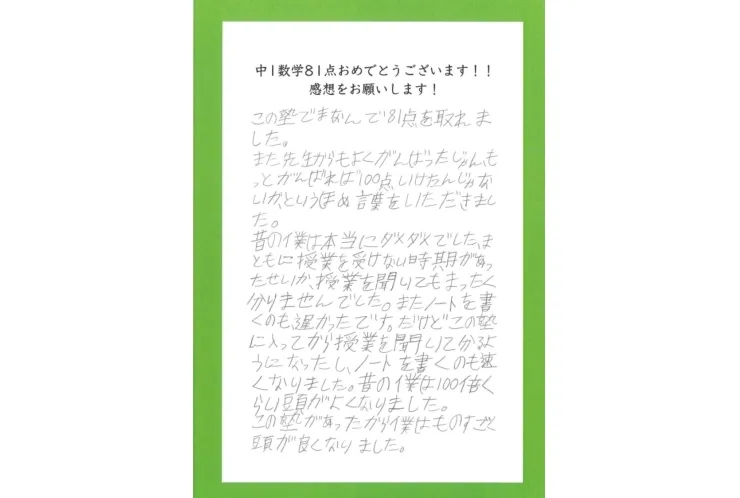 中1数学81点おめでとうございます！！
感想をお願いします！
この塾でまなんで81点を取れま
した。
また先生からもよくがんばったじゃんも
っとがんばれば100点いけたんじゃな
いか、というほめ言葉をいただきまし
た。
昔の僕は本当にダメダメでした。ま
ともに授業を受けない時期があっ
たせいか、授業を聞いてもまったく
分りませんでした。またノートを書
くのも遅かったです。だけどこの塾
に入ってから授業を聞いて分るよ
うになったし、ノートを書くのも速
くなりました。昔の僕は100倍く
らい頭がよくなりました。
この塾があったから僕はものすごく
頭が良くなりました。